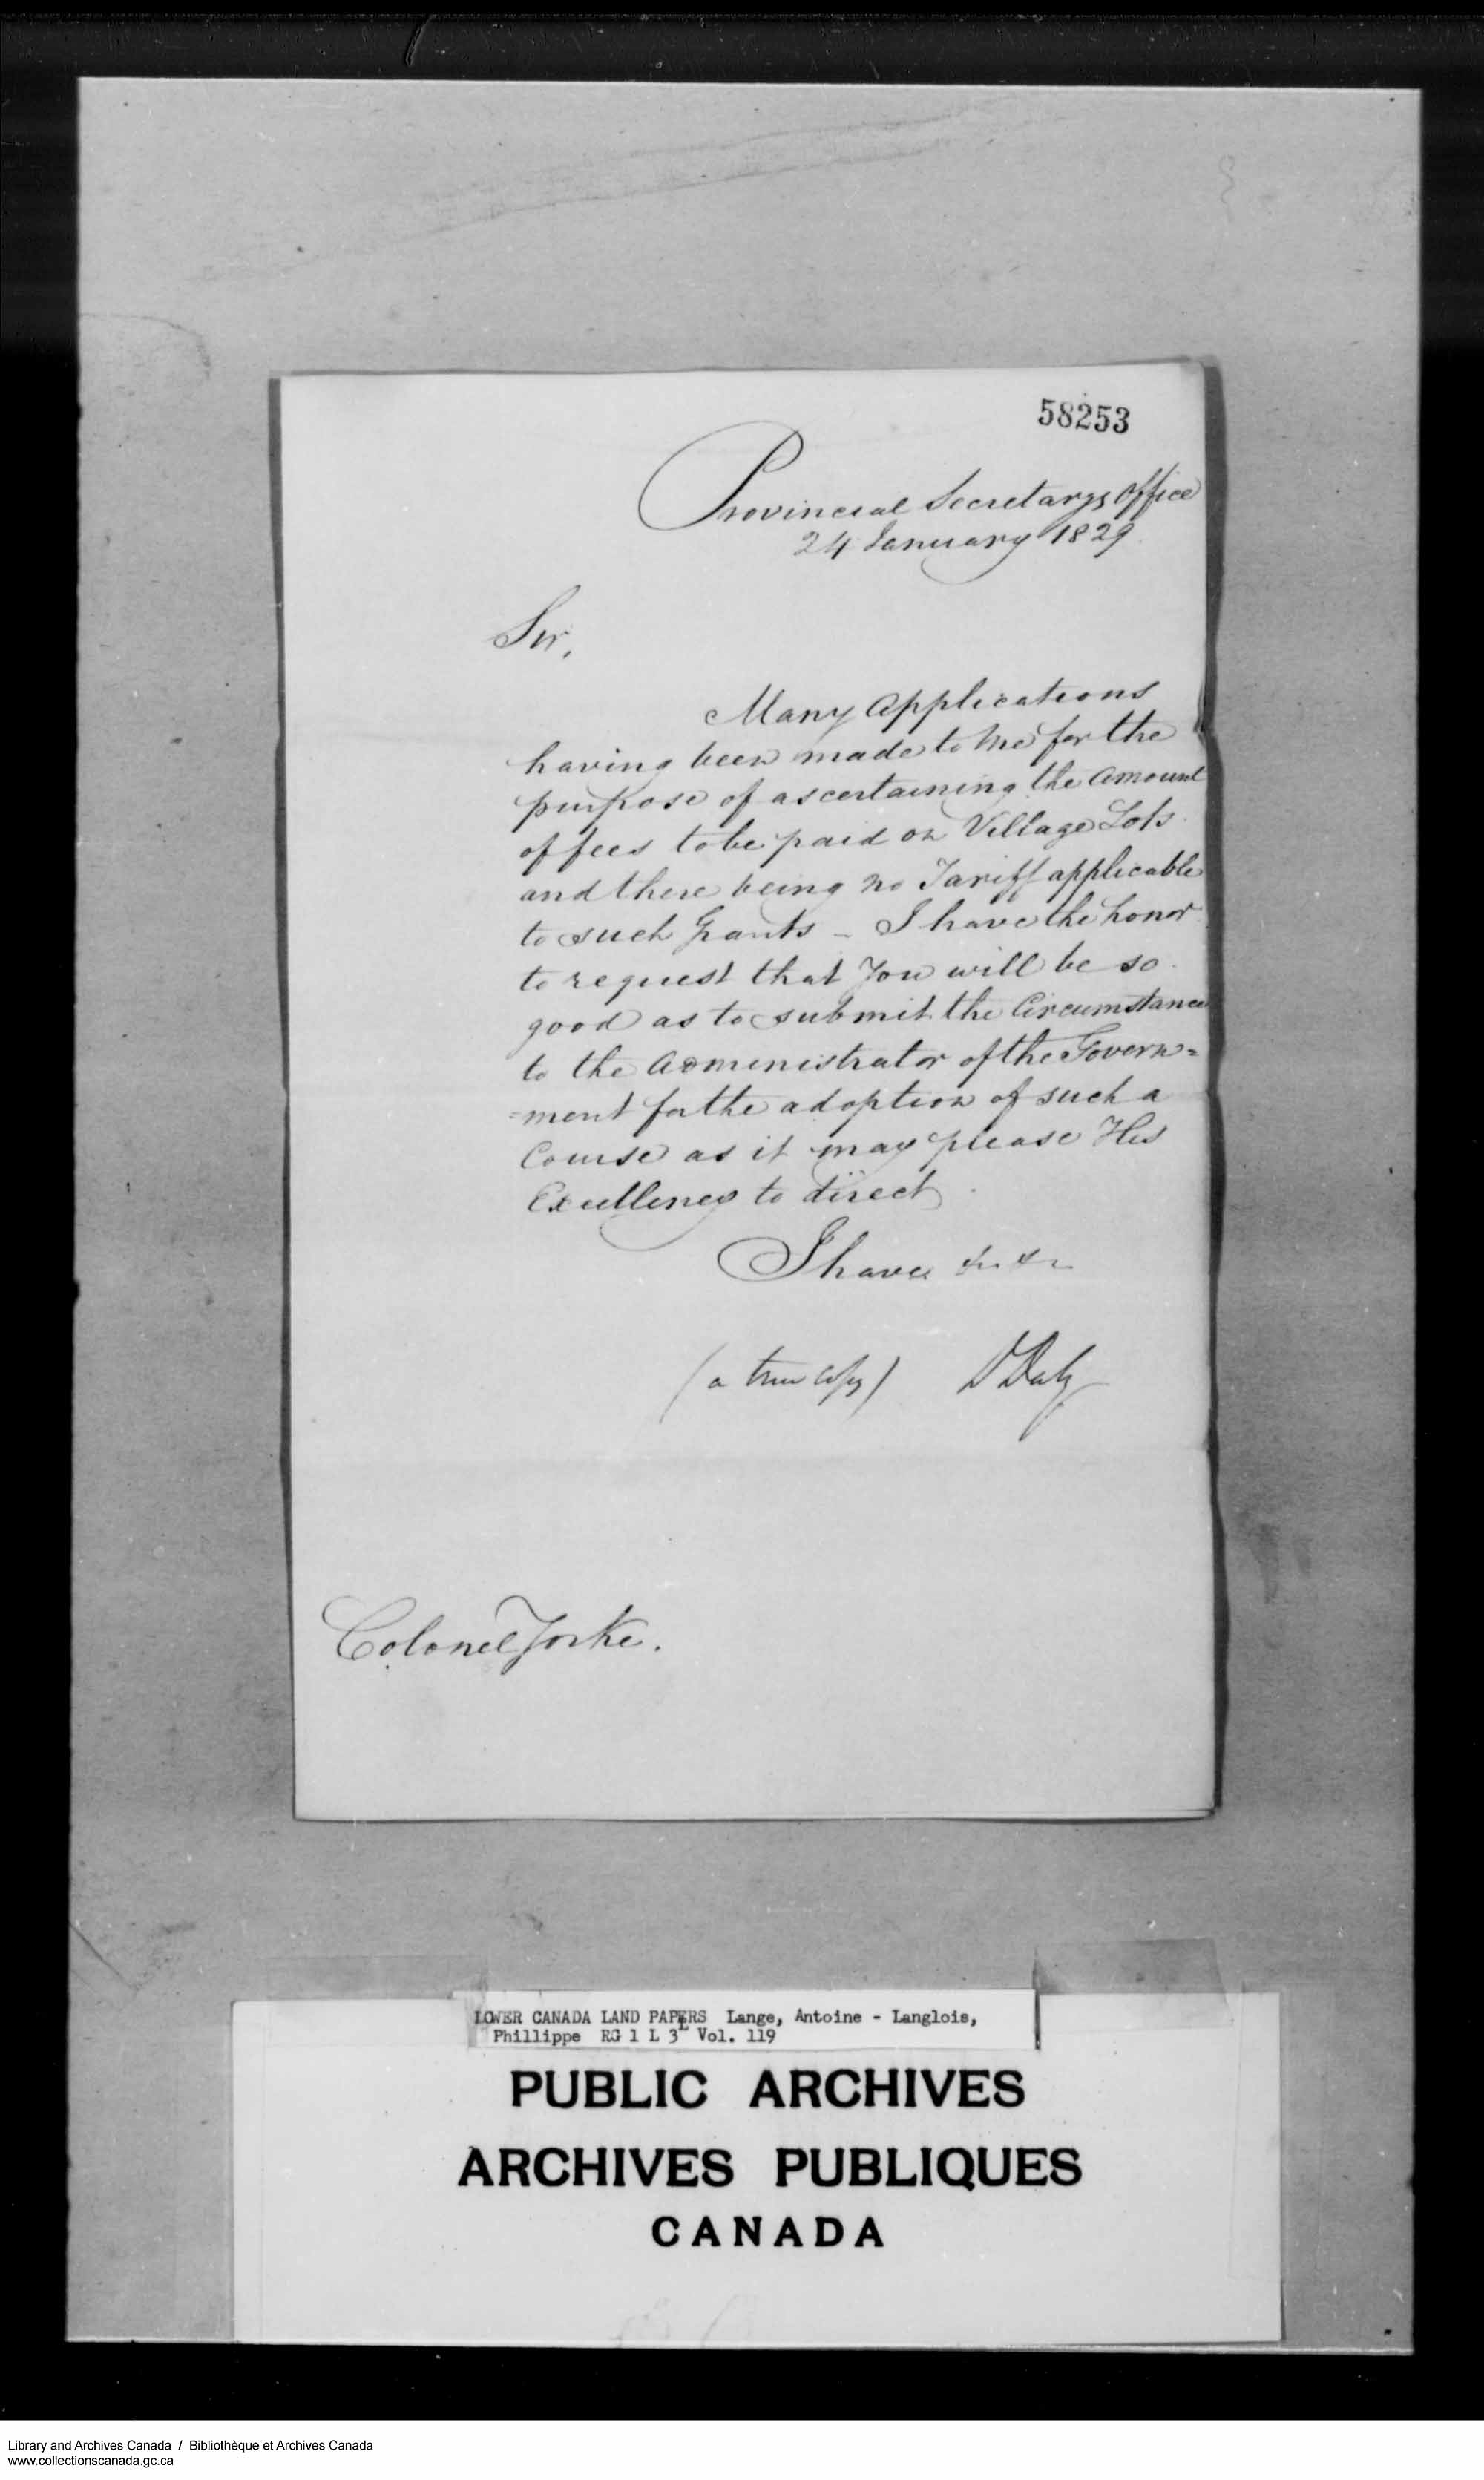 58253
Provincial Secretarys Office
24 January 1829.
Sir,
Many Applications
having been made to me for the
purpose of ascertaining the Amount
of fees to be paid on Village Lots
and there being no Tariff applicable
to such Grants - I have the honor
to request that You will be so
good as to submit the Circumstance
to the Administrator of the Govern=
=ment for the adoption of such a
Course as it may please His
Excellency to direct.
I have &c &c
(a true copy) D Daly
Colonel Yorke.
LOWER CANADA LAND PAPERS Lange, Antoine - Langlois,
Phillippe RG 1 L 3L Vol. 119
PUBLIC ARCHIVES
ARCHIVES PUBLIQUES
CANADA
Library and Archives Canada / Bibliothèque et Archives Canada
www.collectionscanada.gc.ca